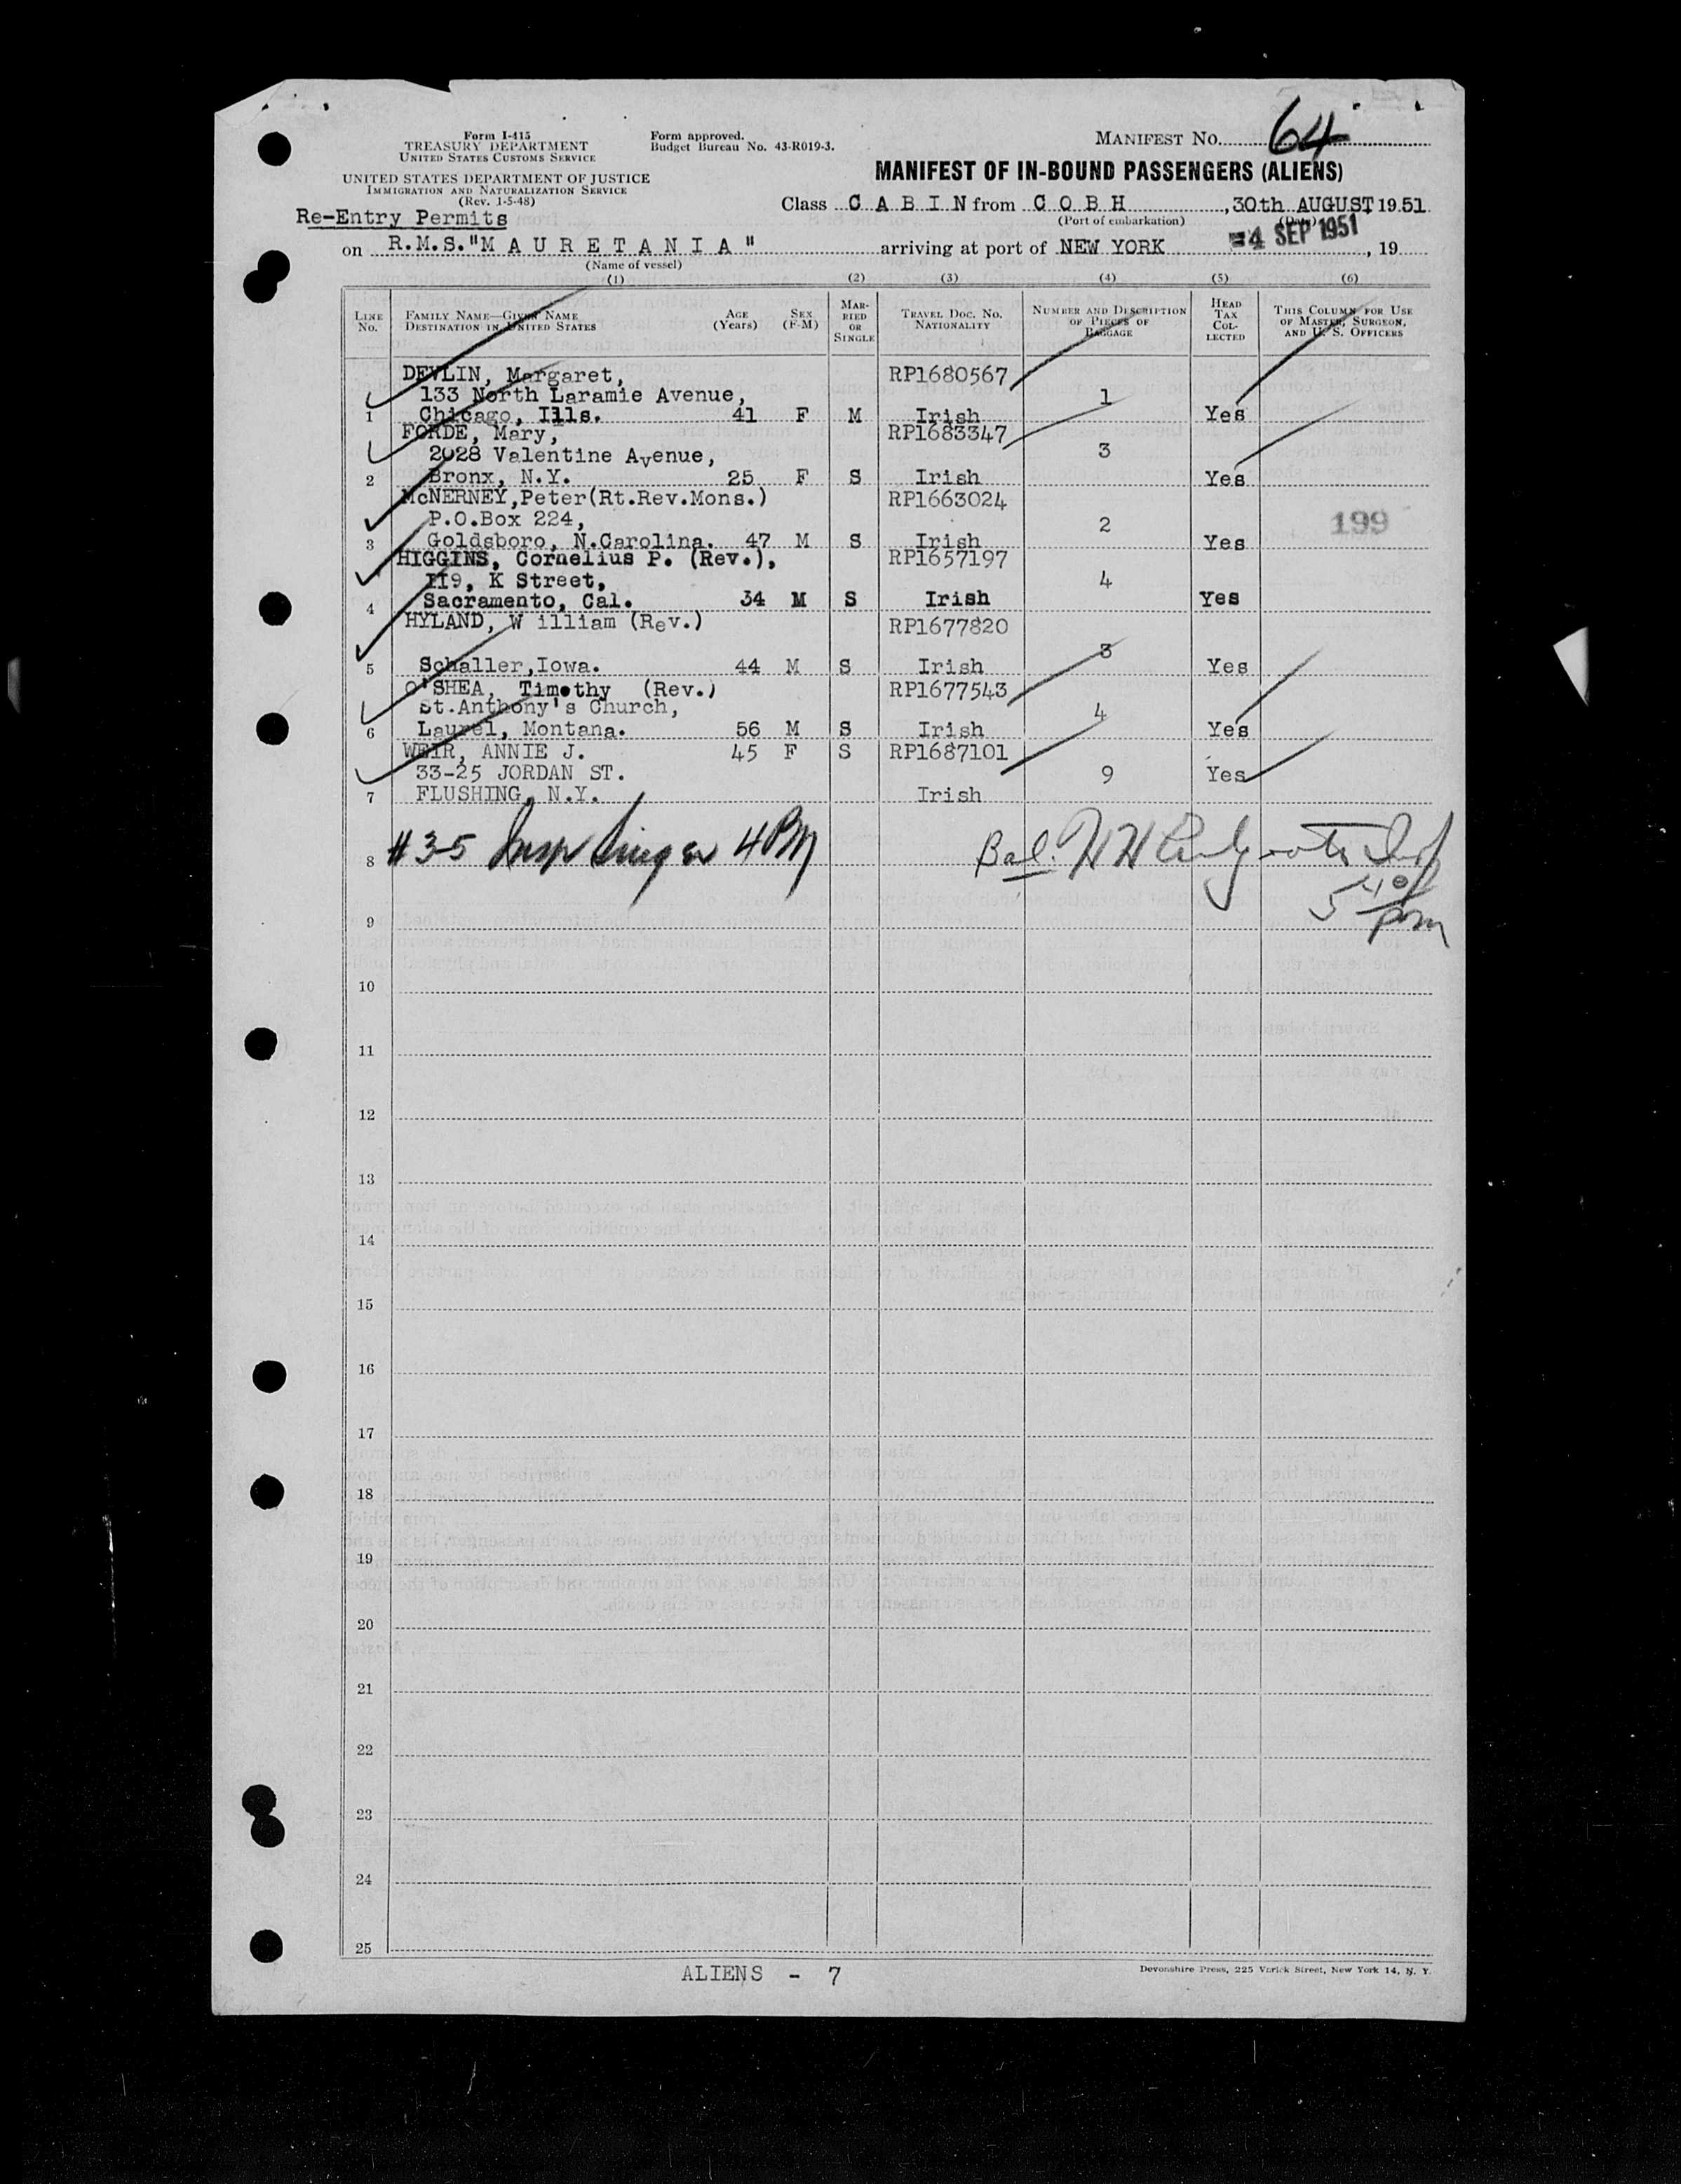 Form I-415
TREASURY DEPARTMENT
UNITED STATES CUSTOMS SERVICE
UNITED STATES DEPARTMENT OF JUSTICE
IMMIGRATION AND NATURALIZATION SERVICE
(Rev. 1-5-48)
Form approved.
Budget Bureau No. 43-R019-3.
MANIFEST NO. 64
MANIFEST OF IN-BOUND PASSENGERS (ALIENS)
Class C A B I N from C O B H, 30th AUGUST 1951
(Port of embarkation) (Date)
Re-Entry Permits
4 SEP 1951
on R.M.S."M A U R E T A N I A" arriving at port of NEW YORK, 19
(Name of vessel)
(1) (2) (3) (4) (5) (6)
LINE NO. FAMILY NAME—GIVEN NAME DESTINATION IN UNITED STATES AGE (Years) SEX (F-M) MARRIED OR SINGLE TRAVEL DOC. NO. NATIONALITY NUMBER AND DESCRIPTION OF PIECES OF BAGGAGE HEAD TAX COLLECTED THIS COLUMN FOR USE OF MASTER, SURGEON, AND U. S. OFFICERS
DEVLIN, Margaret, RP1680567
133 North Laramie Avenue, 1
1 Chicago, Ills. 41 F M Irish Yes
FORDE, Mary, RP1683347
2028 Valentine Avenue, 3
2 Bronx, N.Y. 25 F S Irish Yes
McNERNEY,Peter(Rt.Rev.Mons.) RP1663024
P.O.Box 224, 2 199
3 Goldsboro, N.Carolina. 47 M S Irish Yes
HIGGINS, Cornelius P. (Rev.), RP1657197
II9, K Street, 4
4 Sacramento, Cal. 34 M S Irish Yes
HYLAND, W illiam (Rev.) RP1677820
3
5 Schaller,Iowa. 44 M S Irish Yes
O'SHEA, Timothy (Rev.) RP1677543
St.Anthony's Church, 4
6 Laurel, Montana. 56 M S Irish Yes
WEIR, ANNIE J. 45 F S RP1687101
33-25 JORDAN ST. 9 Yes
7 FLUSHING, N.Y. Irish
8 #3-5 Insp 4 PM Bal.
5 40 pm
9
10
11
12
13
14
15
16
17
18
19
20
21
22
23
24
25
ALIENS - 7
Devonshire Press, 225 Varick Street, New York 14, N. Y.